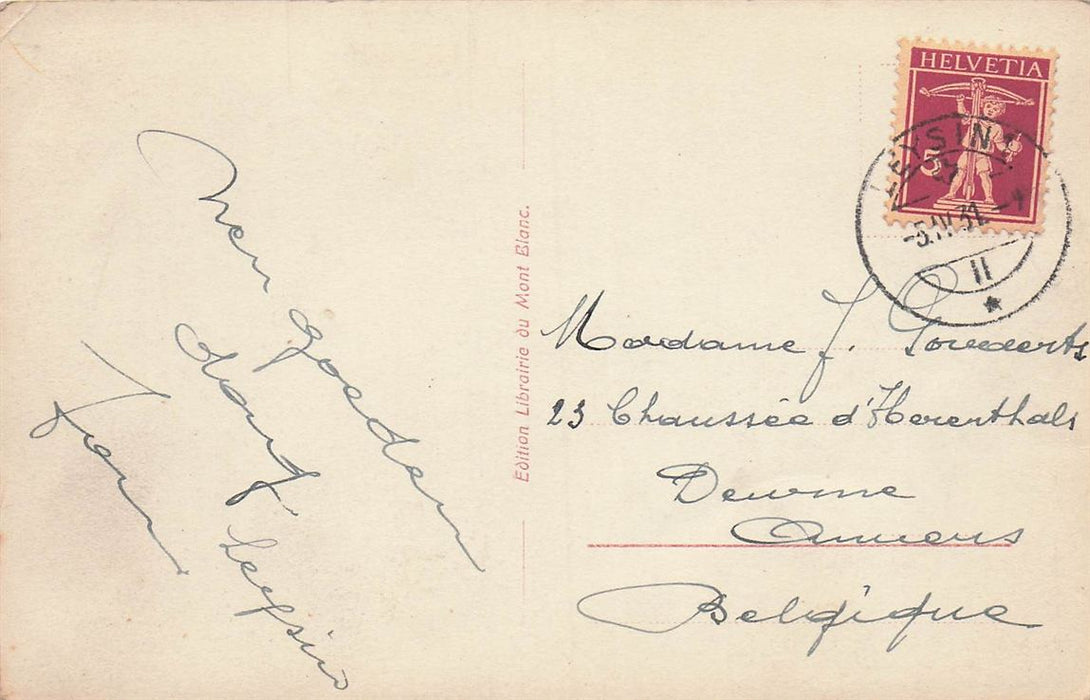 HELVETIA
5
LEYSIN
-5.IV.31.-
II
Edition Librairie du Mont Blanc.
goeden
dank
Leysin
Madame J.
23 Chaussée d'Herenthals
Deurne
Anvers
Belgique